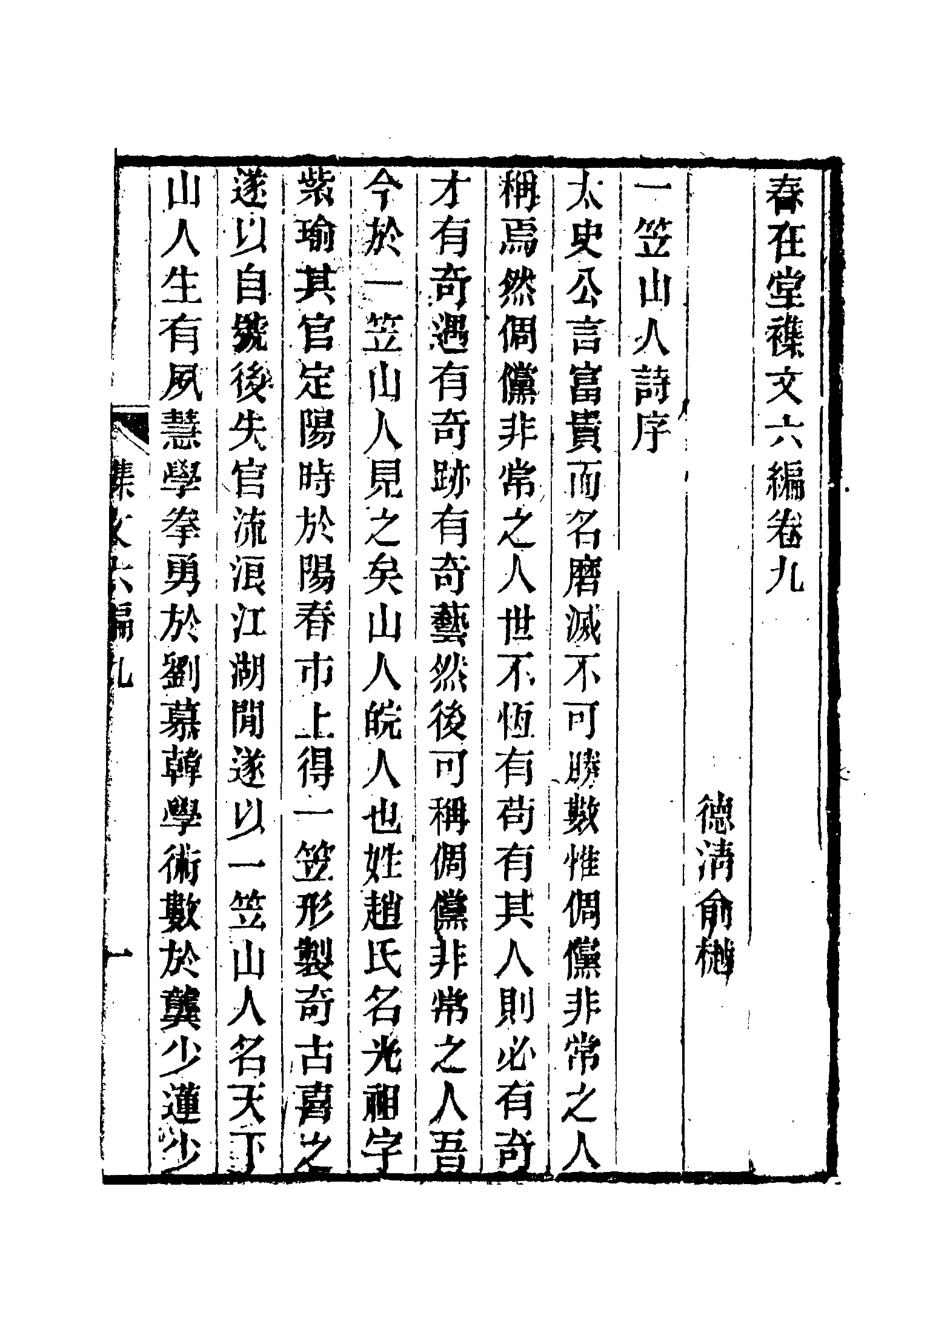 春在堂襍文六編卷九
德清俞樾
一笠山人詩序
太史公言富貴而名磨滅不可勝數惟倜儻非常之人
稱焉然倜儻非常之人世不恆有苟有其人則必有奇
才有奇遇有奇跡有奇藝然後可稱倜儻非常之人吾
今於一笠山人見之矣山人皖人也姓趙氏名光祖字
紫瑜其官定陽時於陽春市上得一笠形製奇古喜之
遂以自號後失官流浪江湖閒遂以一笠山人名天下
山人生有夙慧學拳勇於劉慕韓學術數於龔少蓮少
集文六編九
一